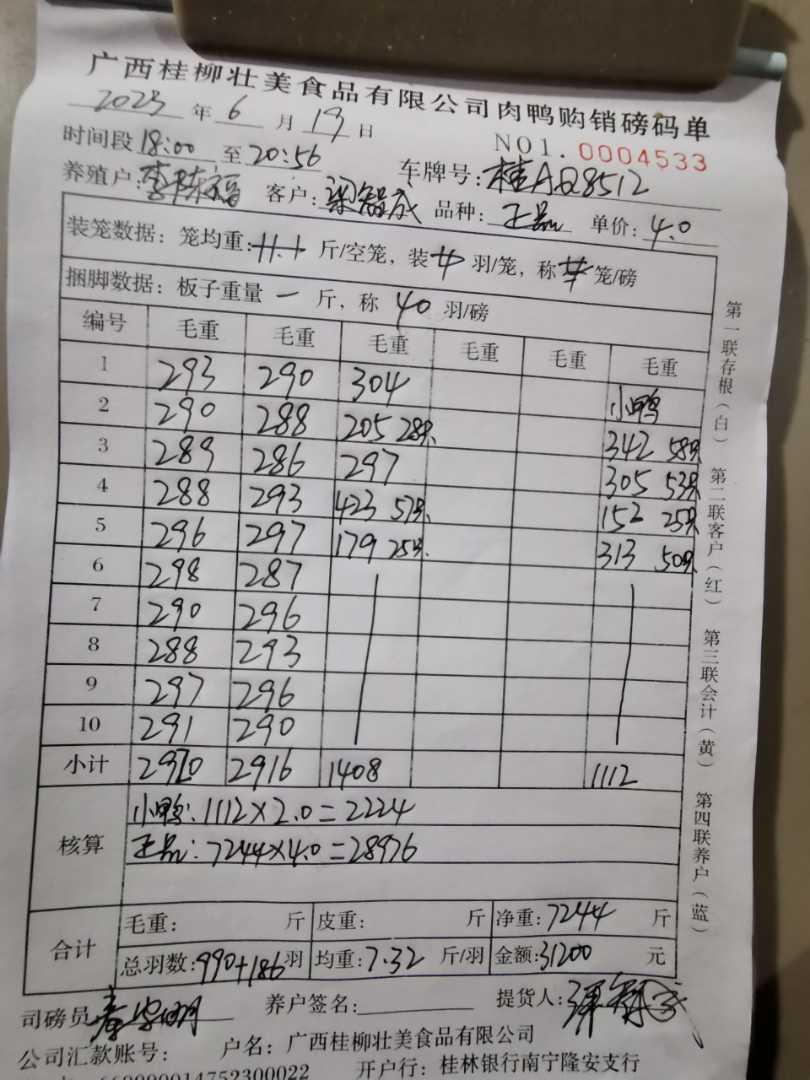 广西桂柳壮美食品有限公司肉鸭购销磅码单
2023 年 6 月 19 日 NO1. 0004533
时间段 18:00 至 20:56 车牌号: 桂AQ8512
养殖户: 李陈福 客户: 梁智成 品种: 正品 单价: 4.0
装笼数据: 笼均重: 斤/空笼, 装 羽/笼, 称 笼/磅
捆脚数据: 板子重量 一 斤, 称 40 羽/磅
编号 毛重 毛重 毛重 毛重 毛重 毛重
1 293 290 304 小鸭
2 290 288 205 28只 342 58只
3 289 286 297 305 53只
4 288 293 423 57只 152 25只
5 296 297 179 25只 313 50只
6 298 287
7 290 296
8 288 293
9 297 296
10 291 290
小计 2920 2916 1408 1112
核算 小鸭: 1112×2.0=2224
正品: 7244×4.0=28976
合计 毛重: 斤 皮重: 斤 净重: 7244 斤
总羽数: 990+186 羽 均重: 7.32 斤/羽 金额: 31200 元
司磅员 养户签名: 提货人:
公司汇款账号: 户名: 广西桂柳壮美食品有限公司
660000014752300022 开户行: 桂林银行南宁隆安支行
第一联存根(白) 第二联客户(红) 第三联会计(黄) 第四联养户(蓝)